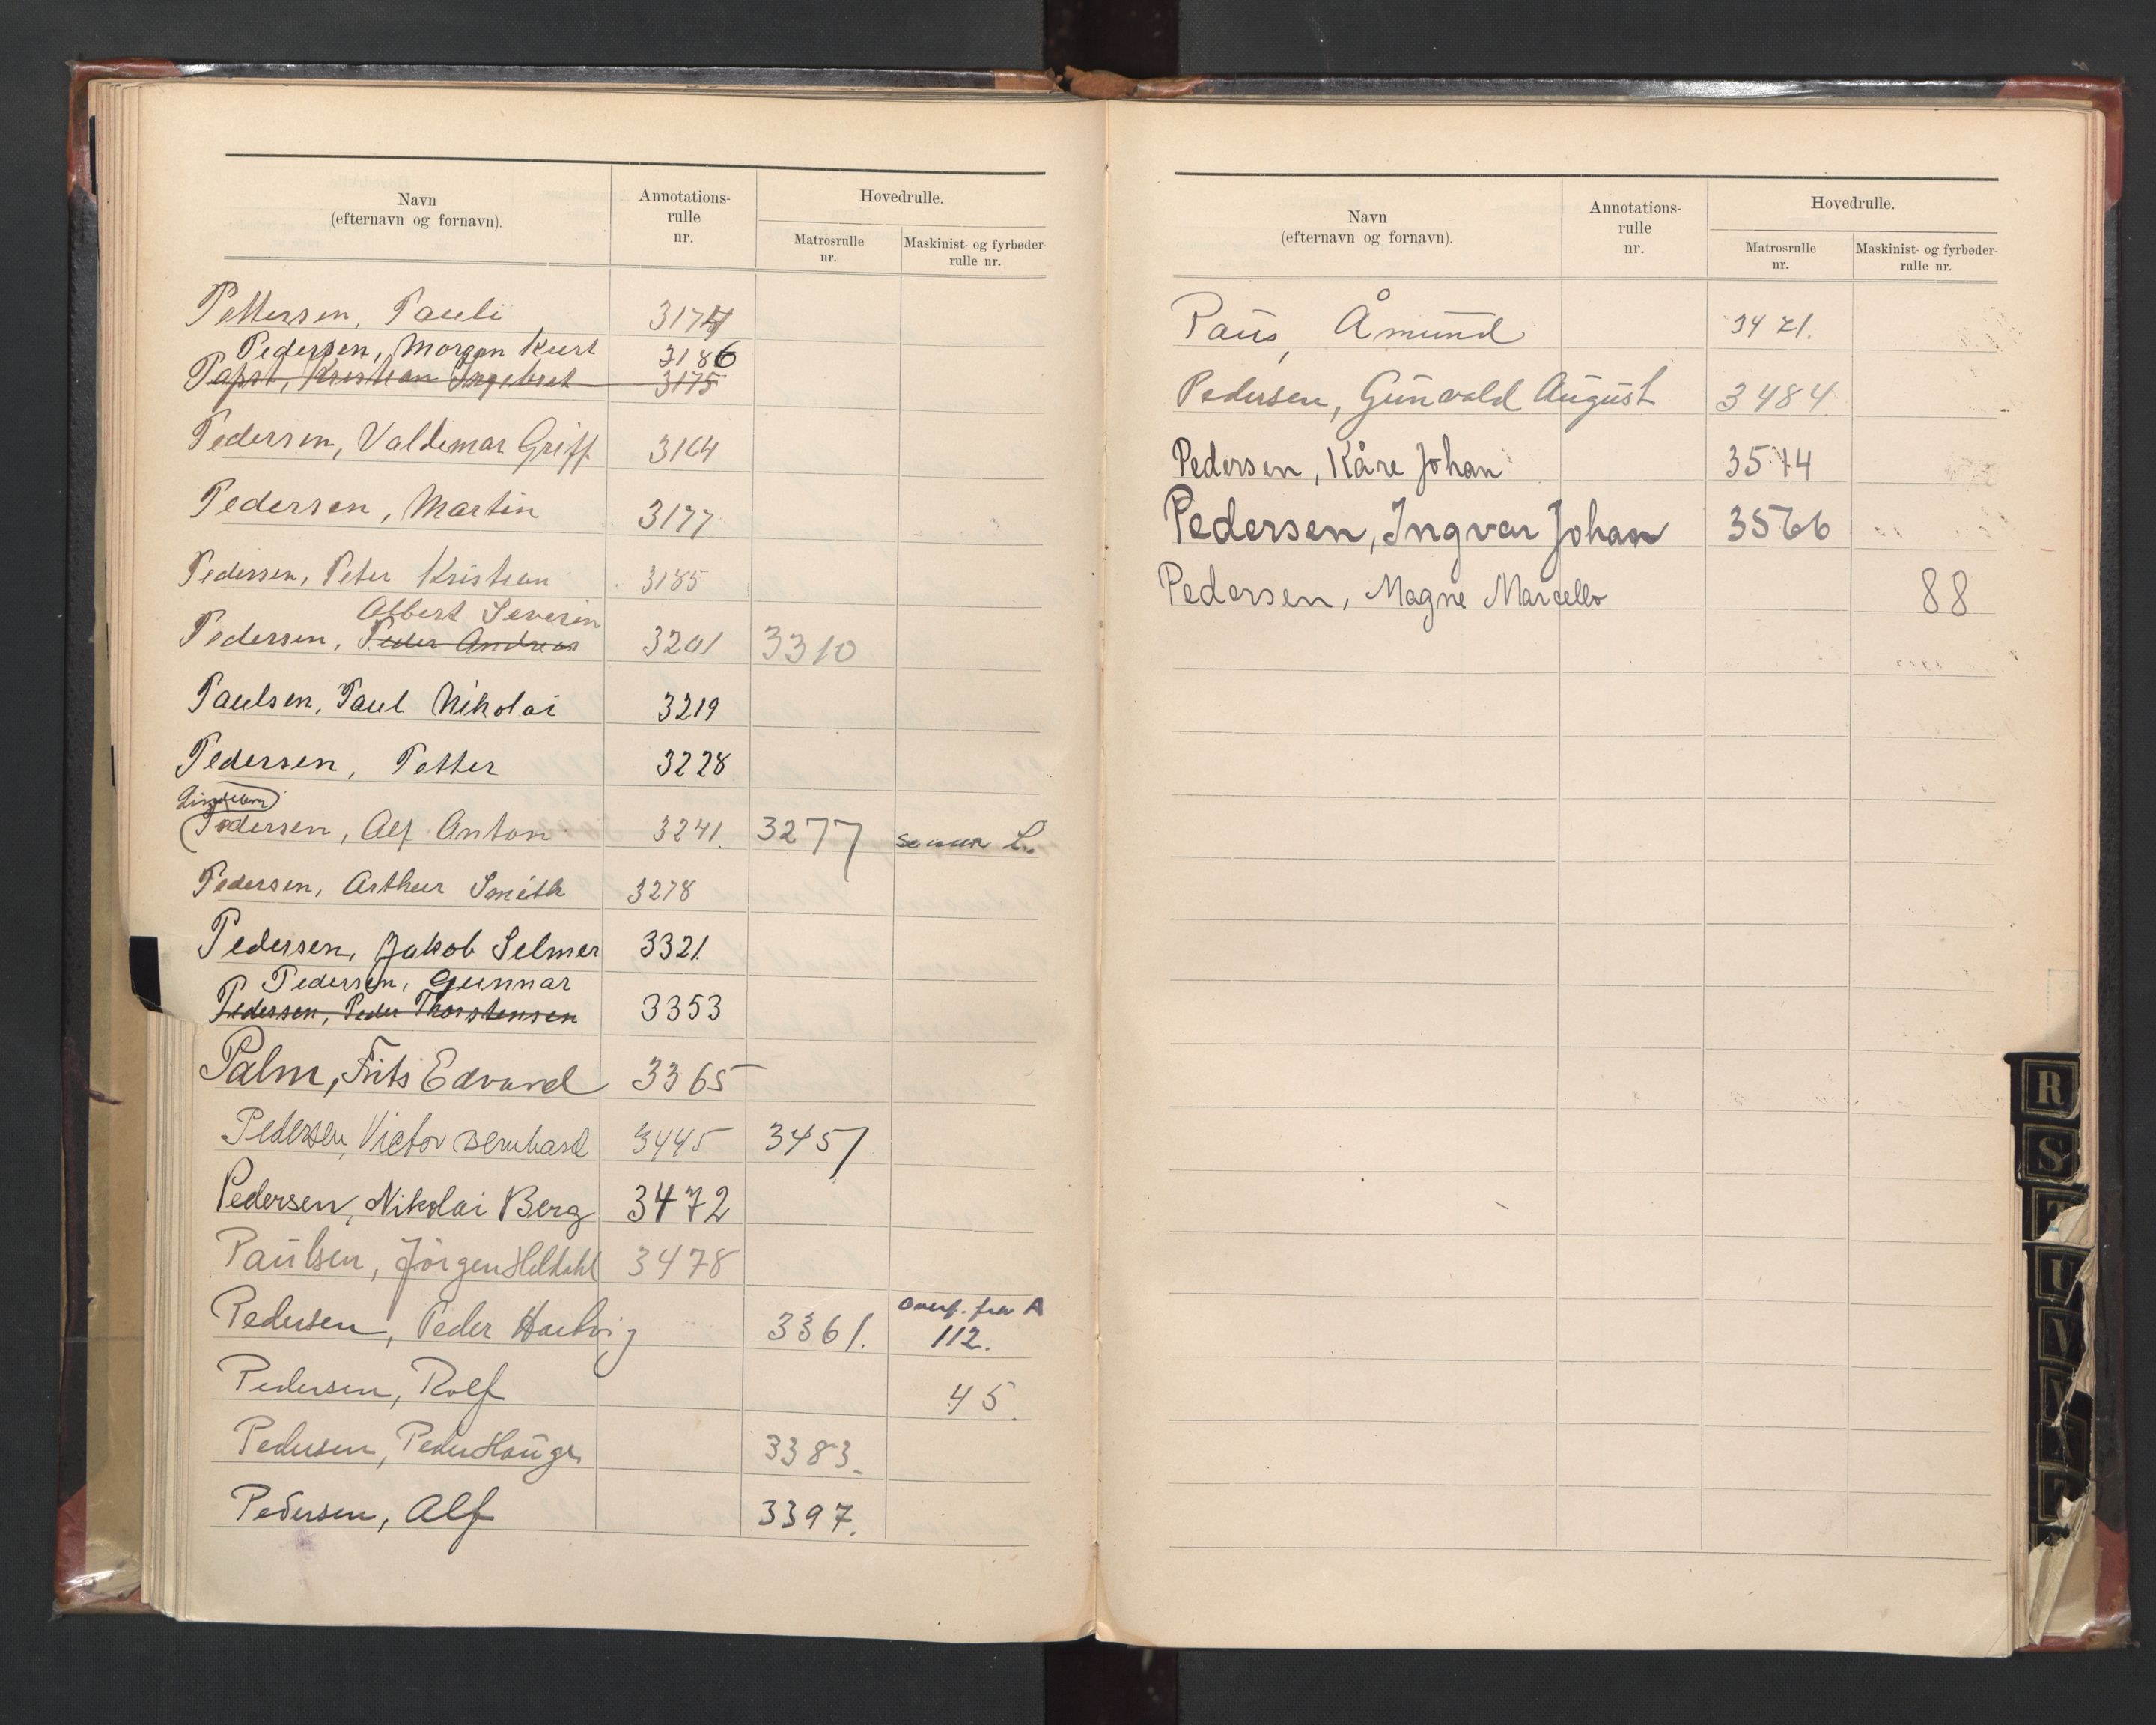 Navn
(efternavn og fornavn).
Annotations-
rulle
nr.
Hovedrulle.
Matrosrulle
nr.
Maskinist- og fyrbøder-
rulle nr.
Pettersen, Pauli
Pedersen, Morgan Kurt 3186
Papst, Kristian Ingebret 3175
Pedersen, Valdemar Griff. 3164
Pedersen, Martin 3177
Pedersen, Peter Kristian 3185
Albert Severin
Pedersen, Peder Andreas 3201 3310
Paulsen, Paul Nikolai 3219
Pedersen, Petter 3228
(Pedersen, Alf Anton 3241. 3277 L.
Pedersen, Arthur Smith 3278
Pedersen, Jakob Selmer 3321.
Pedersen, Gunnar
Pedersen, Peder Thorstensen 3353
Palm, Frits Edvard 3365
Pedersen, Victor Bernhard 3445 3457
Pedersen, Nikolai Berg 3472
Paulsen, Jörgen Heldahl 3478
Overf. fra A
Pedersen, Peder Hartvig 3361. 112.
Pedersen, Rolf 45.
Pedersen, Peder Hauge 3383.
Pedersen, Alf 3397.
Navn
(efternavn og fornavn).
Annotations-
rulle
nr.
Hovedrulle.
Matrosrulle
nr.
Maskinist- og fyrbøder-
rulle nr.
Paus, Åmund 3421.
Pedersen, Gunvald August 3484
Pedersen, Kåre Johan 3514
Pedersen, Ingvar Johan 3566
Pedersen, Magne Marcello 88
R
S
T
U
V